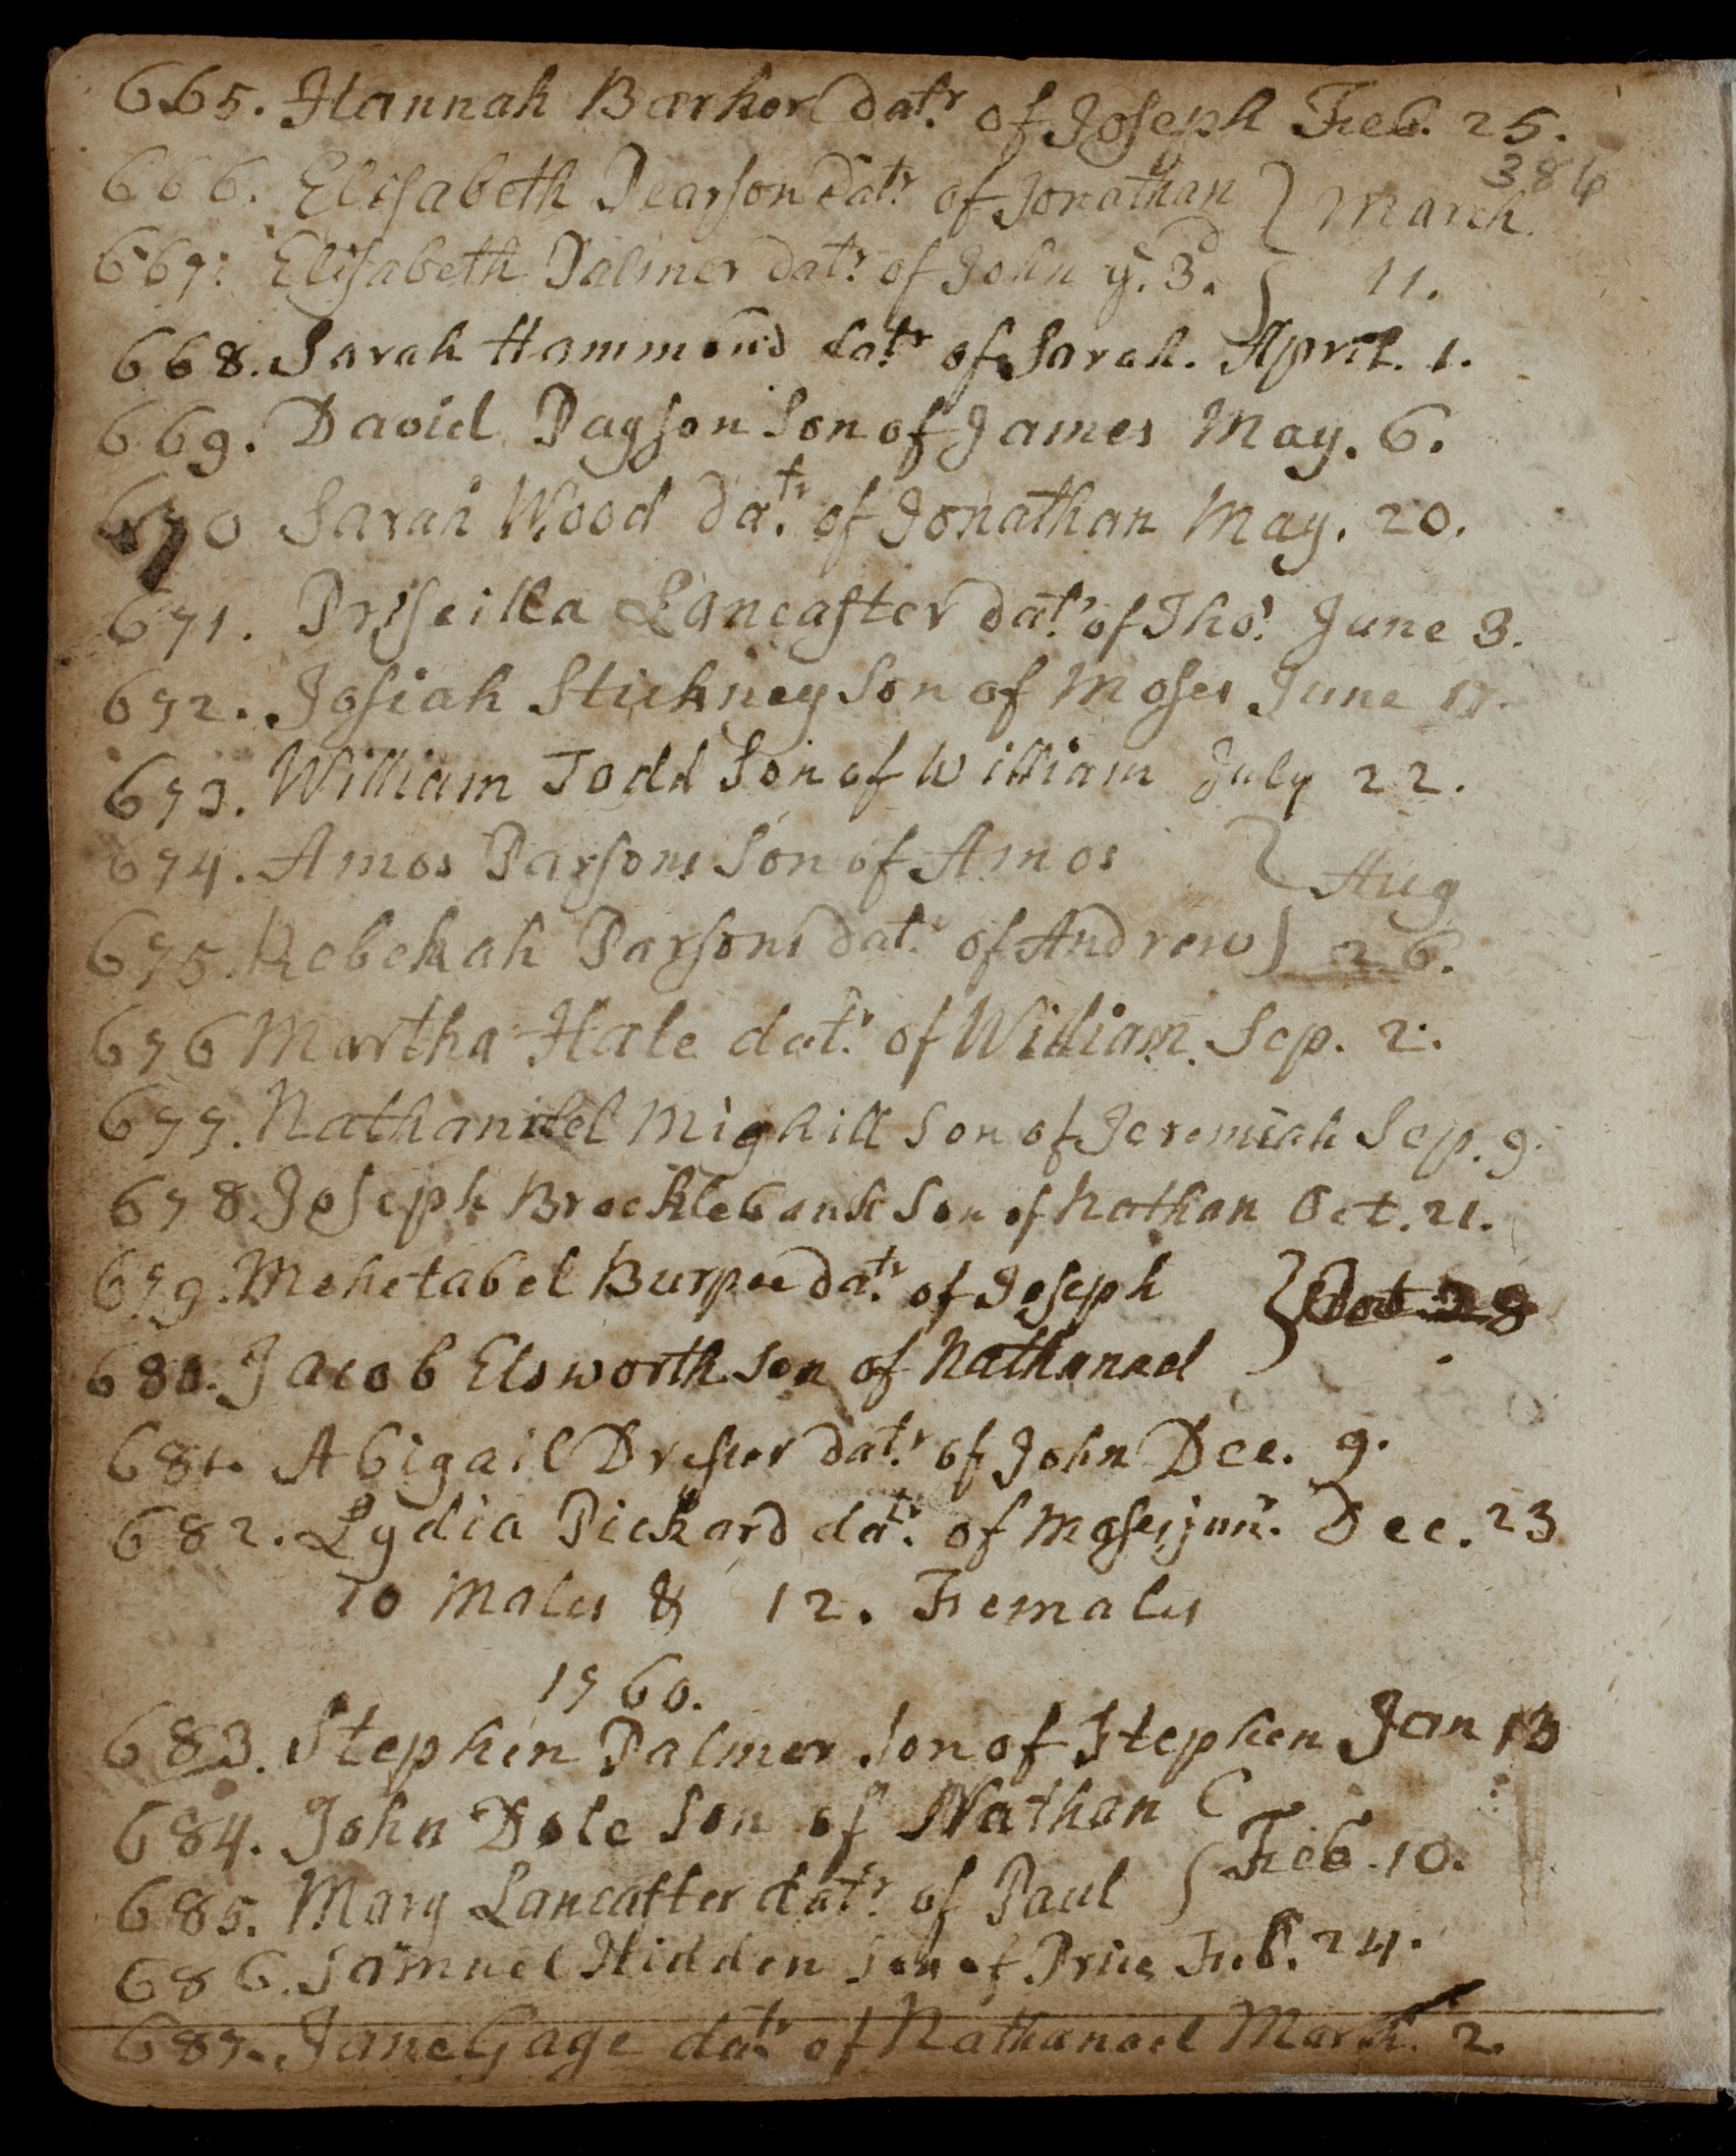 665. Hannah Barker datr. of Joseph Feb. 25.
386
666. Elisabeth Pearson datr. of Jonathan } March
667. Elisabeth Palmer datr. of John ye. 3d. } 11.
668. Sarah Hammond datr of Sarah. April. 1.
669. David Payson Son of James May. 6.
670 Sarah Wood datr. of Jonathan May. 20.
671. Priscilla Lancaster datr. of Thos. June 3.
672. Josiah Stickney Son of Moses June 17.
673. William Todd Son of William July 22.
674. Amos Parsons Son of Amos } Aug
675. Rebekah Parsons datr. of Andrew } 26.
676 Martha Hale datr. of William Sep. 2.
677. Nathaniel Mighill Son of Jeremiah Sep. 9.
678 Joseph Brocklebank Son of Nathan Oct. 21.
679. Mehetabel Burpee datr. of Joseph } 28
680. Jacob Elsworth Son of Nathanael
681. Abigail Dresser datr. of John Dec. 9.
682. Lydia Pickard datr. of Moses junr. Dec. 23
10 Males & 12. Females
1760.
683. Stephen Palmer Son of Stephen Jan 13
684. John Dole Son of Nathan
685. Mary Lancaster datr. of Paul } Feb. 10.
686. Samuel Hidden Son of Price Feb. 24.
687. Jane Gage datr. of Nathanael March. 2.